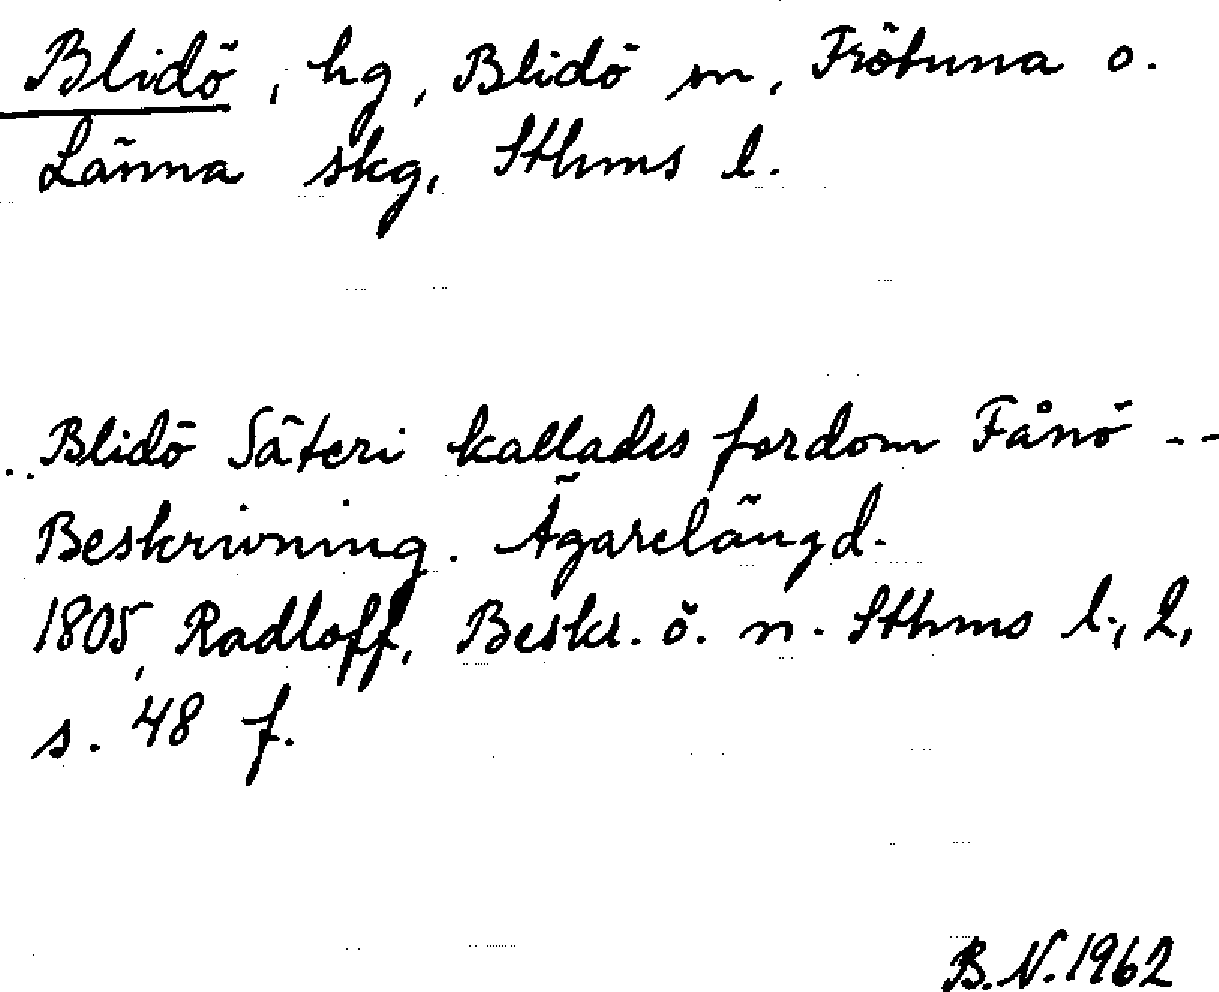 Blidö, hg, Blidö sn, Frötuna o.
Länna skg, Sthms l.
Blidö Säteri kallades fordom Fånö --
Beskrivning. Ägarelängd.
1805, Radloff, Beskr. ö. n. Sthms l., 2,
s. 48 f.
B.N. 1962